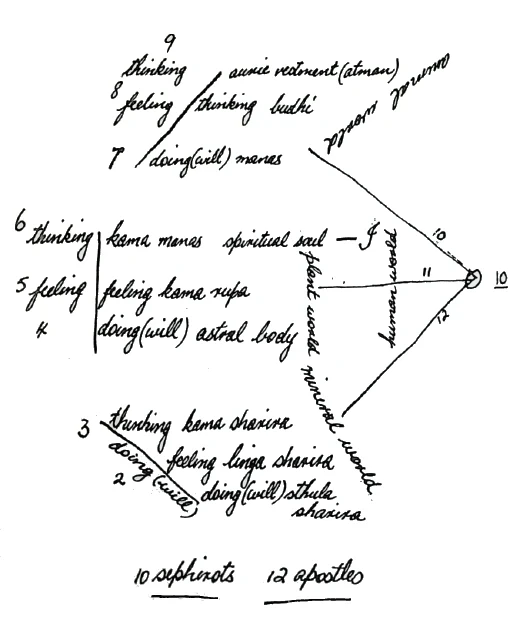 9
thinking auric vestment (atman)
8 feeling thinking budhi
7 doing (will) manas
animal world
6 thinking kama manas spiritual soul — I
5 feeling feeling kama rupa
4 doing (will) astral body
plant world
human world
mineral world
10
11
12
10
3 thinking kama sharira
doing (will) feeling linga sharira
2 doing (will) sthula
sharira
10 sephirots 12 apostles